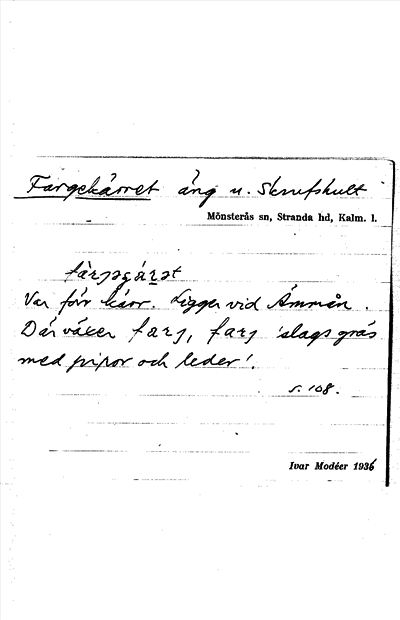 Fargekärret äng u. Skrufshult
Mönsterås sn, Stranda hd, Kalm. l.
Var förr kärr. Ligger vid Ämmån.
Där växer farj, farj 'slags gräs
med pipor och leder'.
s. 108.
Ivar Modéer 1936